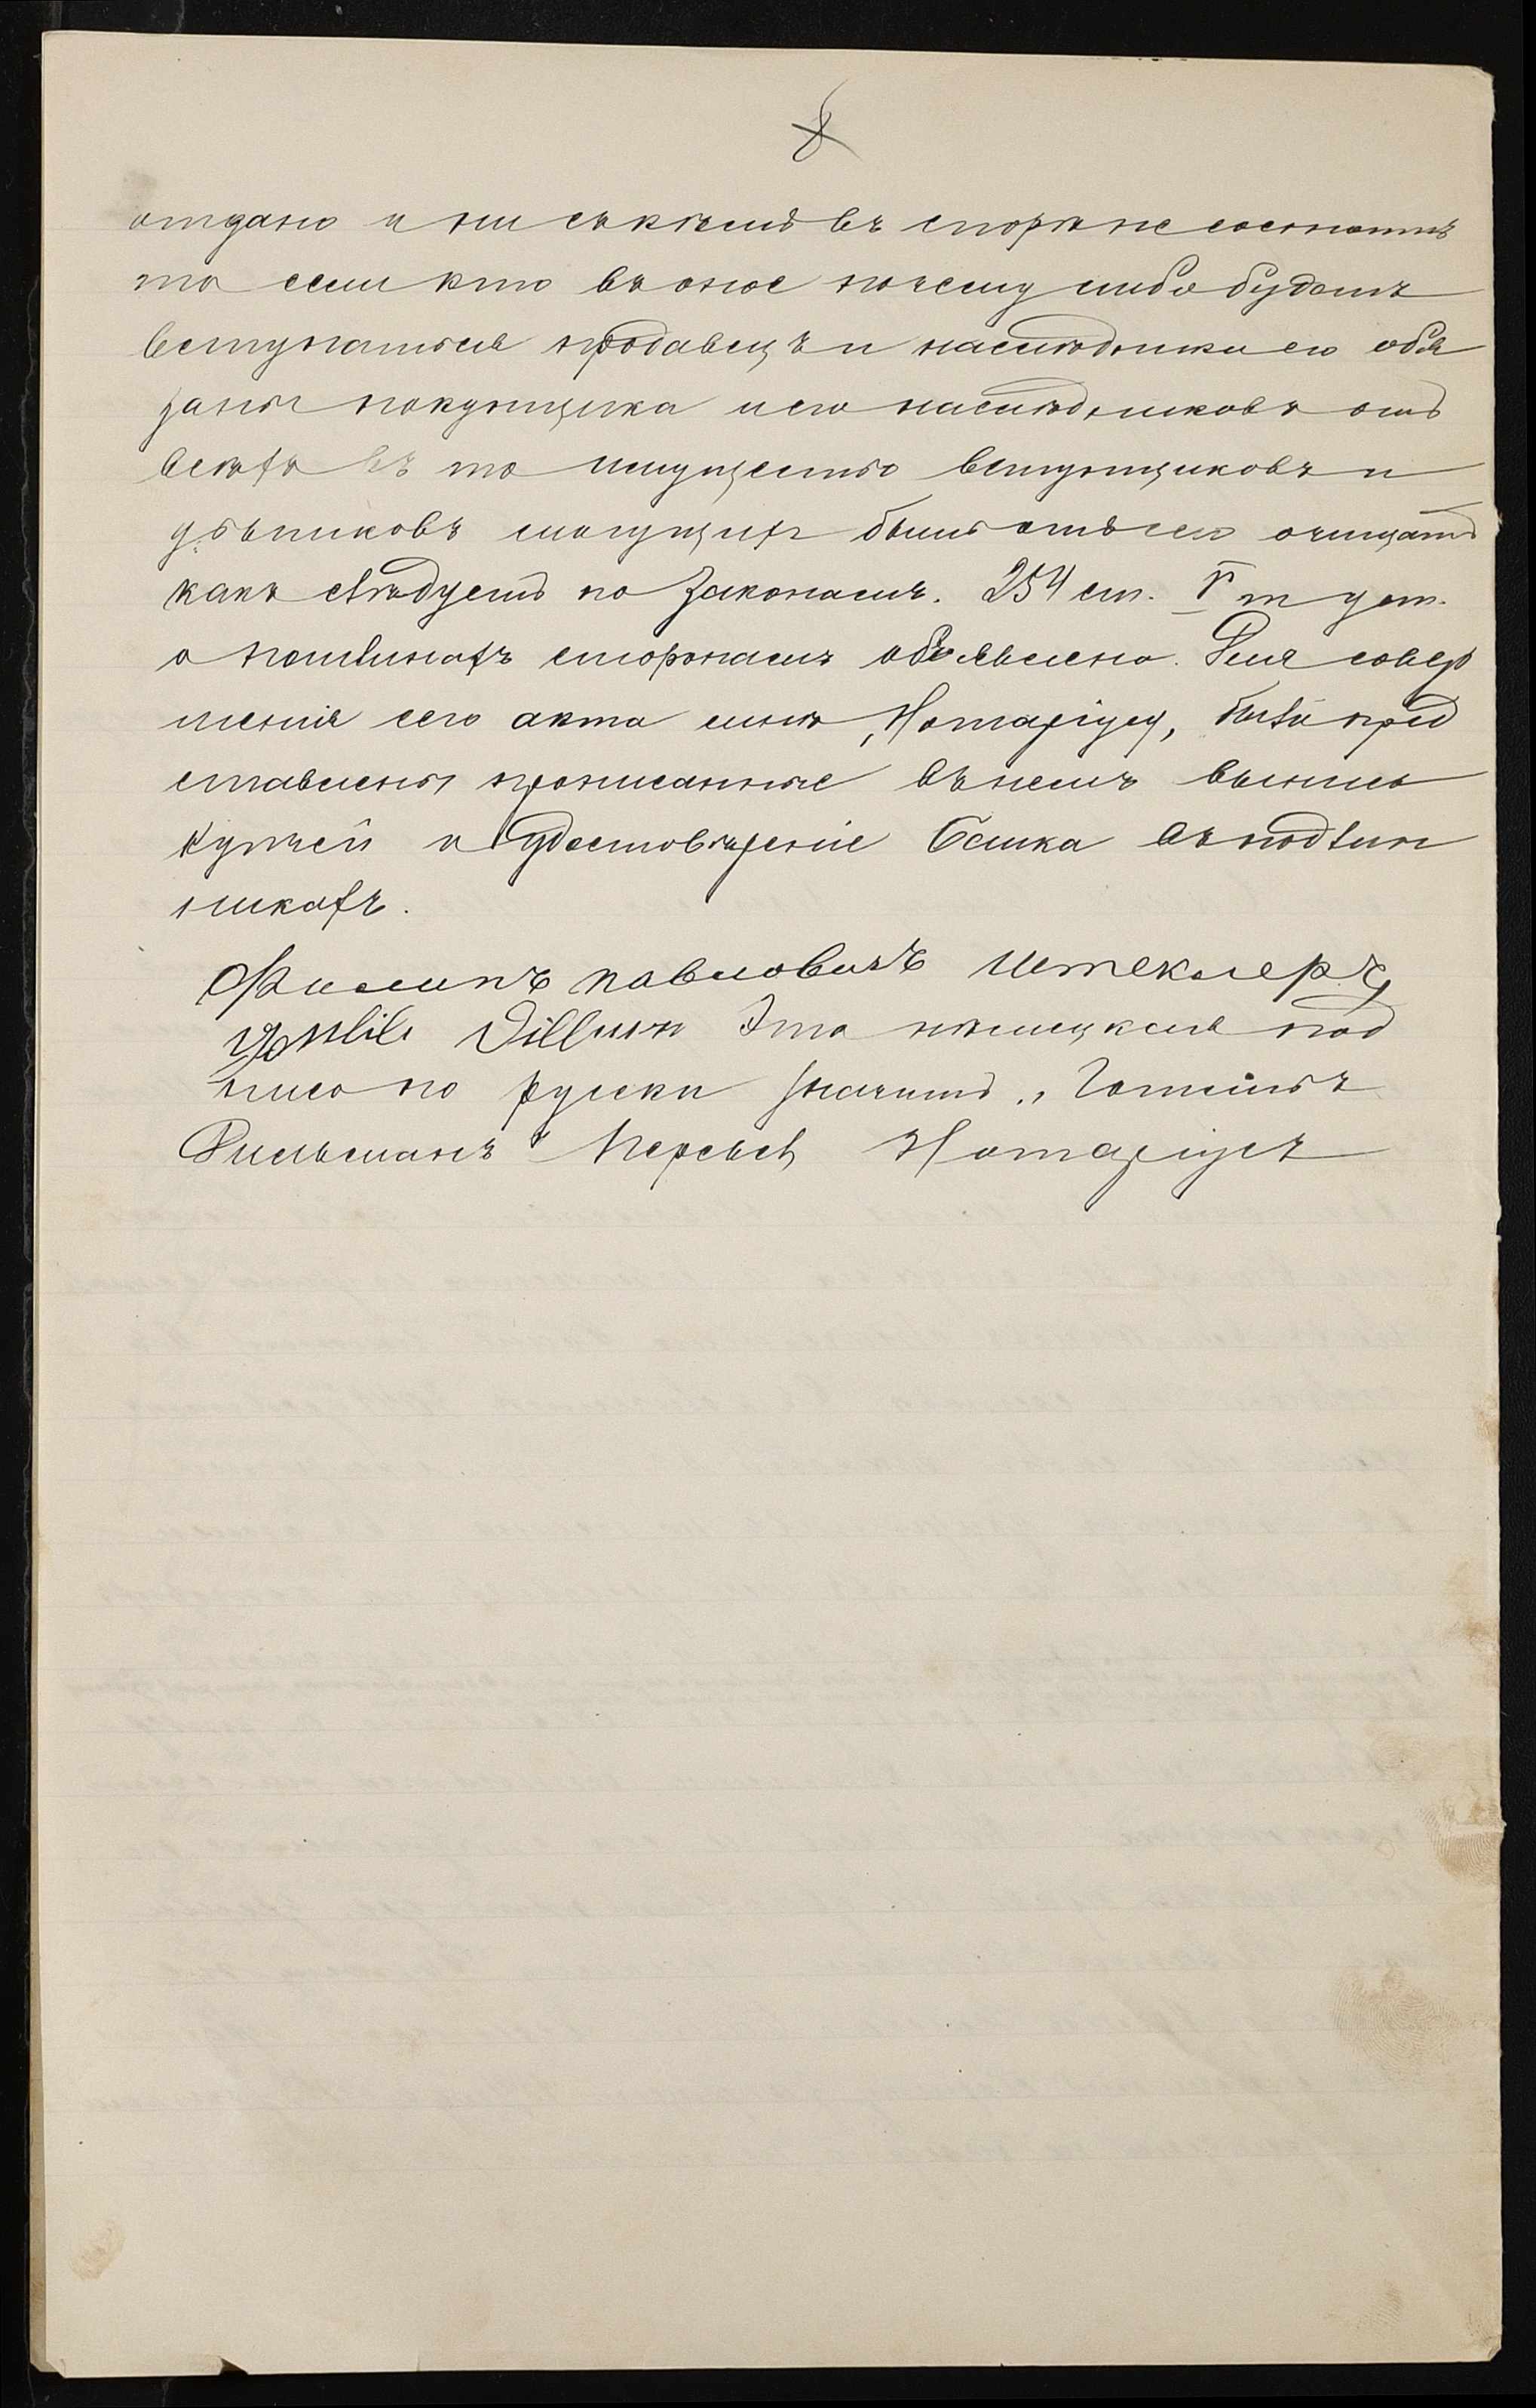 8
отдано и ни съ кѣмъ въ спорѣ не состоитъ
то если кто въ оное почему либо будетъ
вступаться продавецъ и наслѣдники его обя
заны покупщика и его наслѣдниковъ отъ
всѣхъ въ то имущество вступщиковъ и
убытковъ могущихъ быть отъ сего очищать
какъ слѣдуетъ по законамъ. 254 ст. V т уст.
о пошлинахъ сторонамъ объявлена. Для совер
шенія сего акта мнѣ, Нотаріусу, были пред
ставлены прописанные въ немъ выпись
купчей и удостовѣреніе Банка въ подлин
никахъ.
Филипъ павловичъ Штеклеръ,
Gottlieb Dillman Эта нѣмецкая под
пись по руски значитъ „Готлибъ
Дильманъ" Нотаріусъ